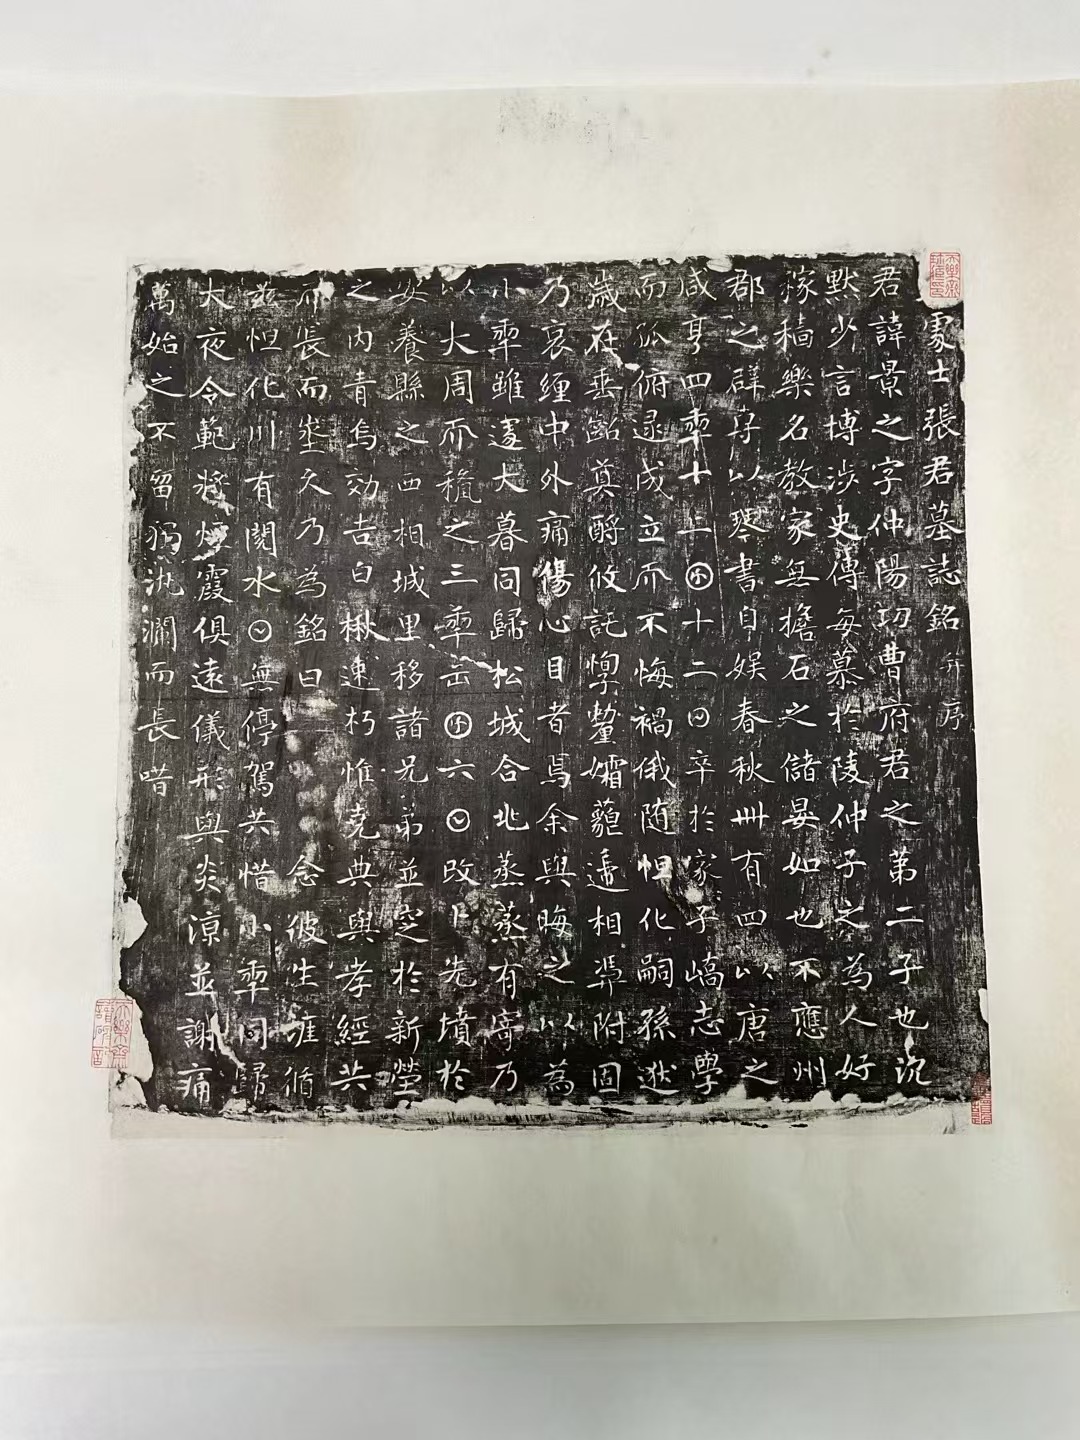 處士張君墓誌銘并序
君諱景之字仲陽功曹府君之第二子也沉
默少言博涉史傳每慕於陵仲子之為人好
稼穡樂名教家無擔石之儲晏如也不應州
郡之辟導以琴書自娛春秋卌有四以唐之
咸亨四𠡦十一𠥱十二日卒於家子嶠志學
而孤俯逮成立而不悔禍俄隨怛化嗣孫逖
歲在垂齠奠酹攸託惸嫠孀藐遞相馮附固
乃哀纏中外痛傷心目者焉余與晦之以為
小𠡦雖遽大暮同歸松城合兆蒸蒸有寄乃
以大周而穐之三𠡦𠙤𠥱六𡆠改卜先墳於
安養縣之西相城里移諸兄弟並窆於新塋
之內青烏効吉白楸速朽惟堯典與孝經共
而長而𡐨久乃為銘曰 念彼生涯脩
茲怛化川有閱水𡆠無停駕共惜小𠡦同歸
大夜令範將煙霞俱遠儀形與炎涼並謝痛
萬始之不留獨汍瀾而長喈